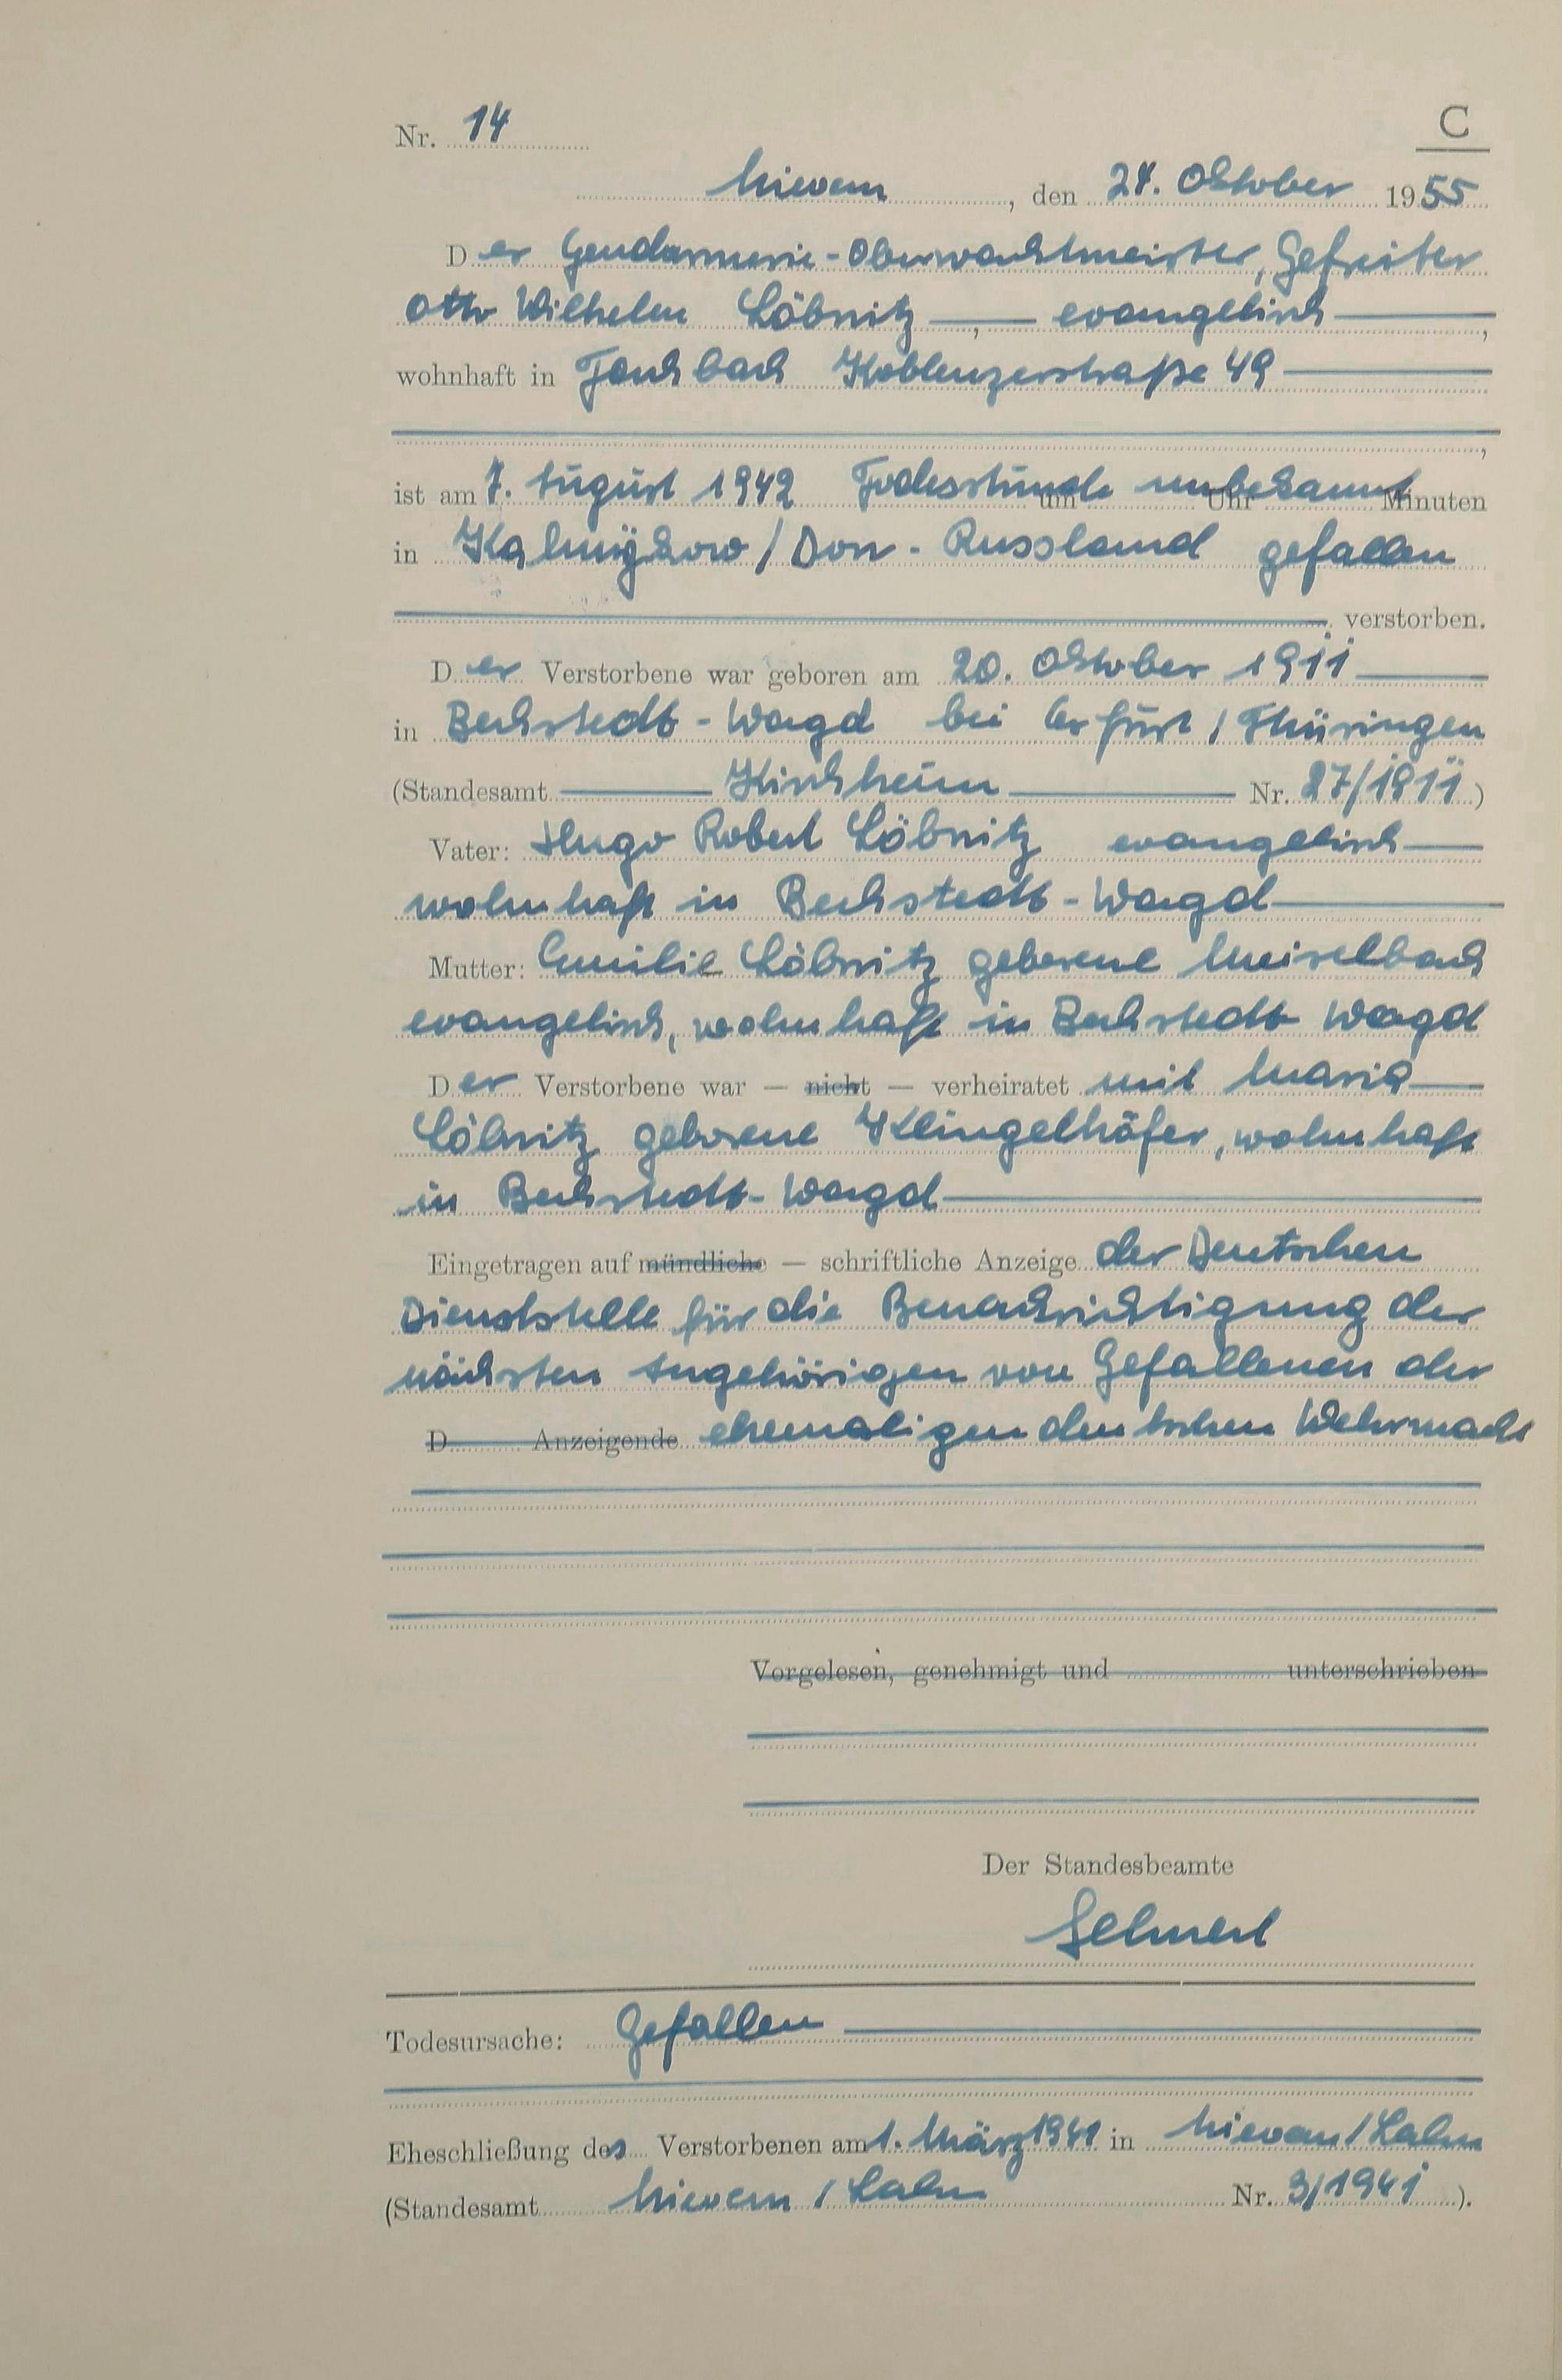 Nr. 14
C
Mievern, den 24. Oktober 1955
Der Gendarmerie-Oberwachtmeister, Gefreiter
Otto Wilhelm Löbnitz —,— evangelisch —,
wohnhaft in Fachbach Koblenzerstraße 49
ist am 7. August 1942 Todesstunde um unbekannt Uhr Minuten
in Kalmÿkow / Don - Russland gefallen
verstorben.
Der Verstorbene war geboren am 20. Oktober 1911
in Bechstedt - Wagd bei Erfurt / Thüringen
(Standesamt Kirchheim Nr. 27/1911)
Vater: Hugo Robert Löbnitz evangelisch
wohnhaft in Bechstedt - Wagd
Mutter: Emilie Löbnitz geborene Meiselbach
evangelisch, wohnhaft in Bechstedt Wagd
Der Verstorbene war — nicht — verheiratet mit Maria
Löbnitz geborene Klingelhöfer, wohnhaft
in Bechstedt - Wagd
Eingetragen auf mündliche — schriftliche Anzeige der Deutschen
Dienststelle für die Benachrichtigung der
nächsten Angehörigen von Gefallenen der
D Anzeigende ehemaligen deutschen Wehrmacht
Vorgelesen, genehmigt und unterschrieben
Der Standesbeamte
Todesursache: Gefallen
Eheschließung des Verstorbenen am 1. März 1941 in Mievern / Lahn
(Standesamt Mievern / Lahn Nr. 3/1941).